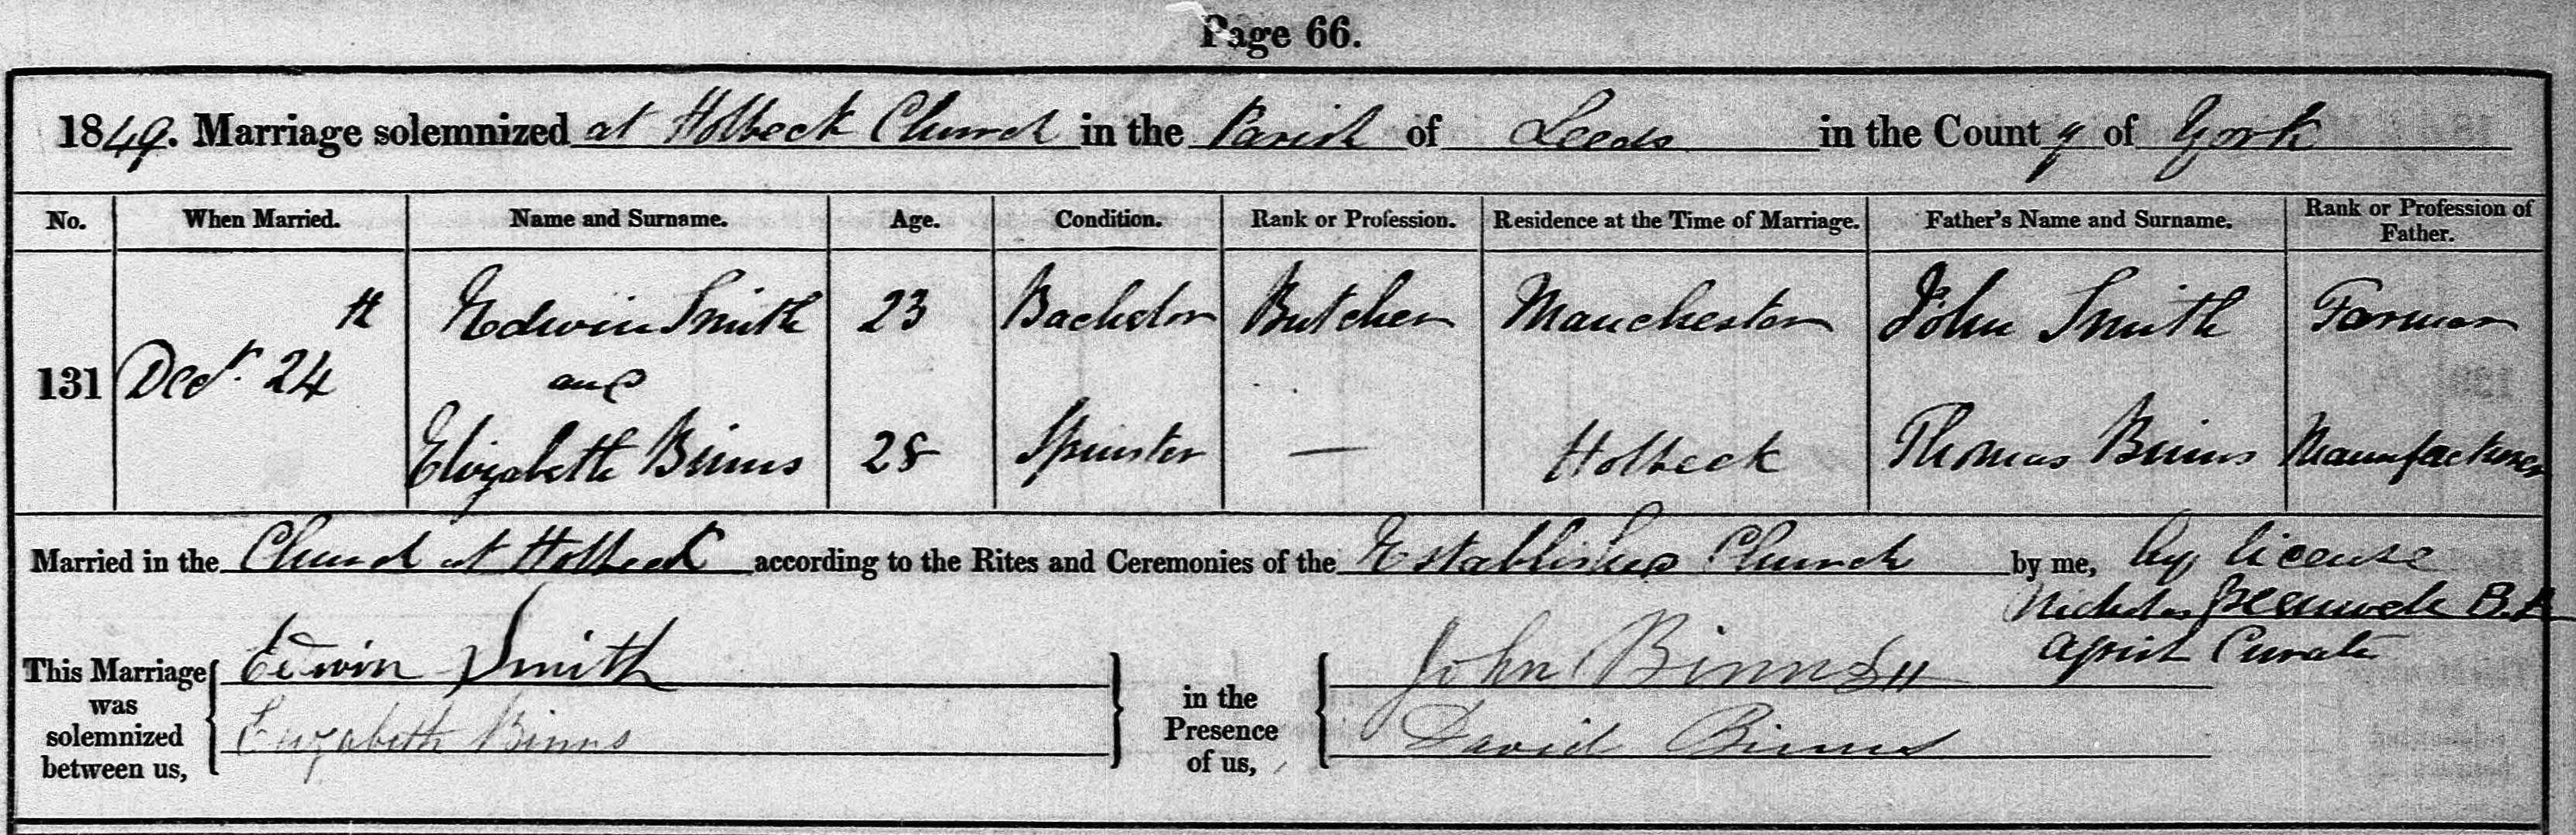 Page 66.
1849. Marriage solemnized at Holbeck Church in the Parish of Leeds in the County of York
No. When Married. Name and Surname. Age. Condition. Rank or Profession. Residence at the Time of Marriage. Father's Name and Surname. Rank or Profession of Father.
th Edwin Smith 23 Bachelor Butcher Manchester John Smith Farmer
131 Decr. 24 and
Elizabeth Binns 28 Spinster — Holbeck Thomas Binns Manufacturer
Married in the Church at Holbeck according to the Rites and Ceremonies of the Established Church by me, by license
Nicholas Greenwell B.A
This Marriage was solemnized between us, Edwin Smith in the Presence of us, John Binns Assist Curate
Elizabeth Binns David Binns